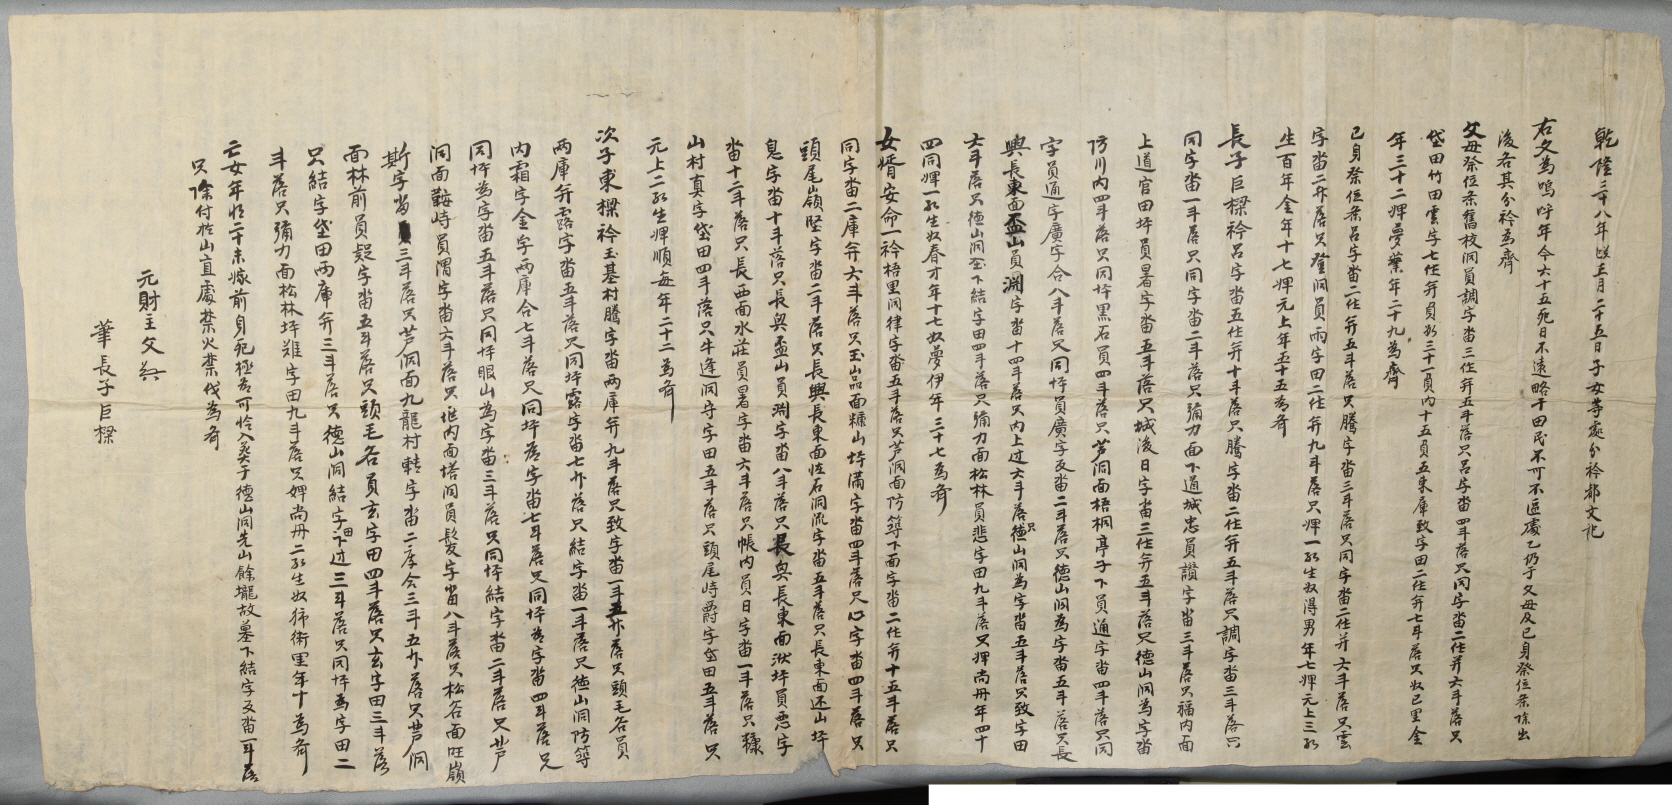 乾隆三十八年 五月二十五日子女等處分衿都文記
右文爲嗚呼年今六十五死日不遠略干田民不可不區處乙仍于父母及己身祭位条除出
後各其分衿爲齊
父母祭位条舊校洞員調字畓三作幷五斗落只呂字畓四斗落只同字畓二作幷六斗落只
垈田竹田雲字七作幷員 三十一負內十五負五束庫致字田二作幷七斗落只奴己里金
年三十二婢夢業年二十九爲齊
己身祭位条呂字畓二作幷五斗落只騰字畓三斗落只同字畓二作幷六斗落只雲
字畓二斗落只登洞員雨字田二作幷九斗落只婢一所生奴得男年七婢元上三所
生百年金年十七婢元上年五十五爲齊
長子巨樑衿呂字畓五作幷十斗落只騰字畓二作幷五斗落只調字畓三斗落只
同字畓一斗落只同字畓二斗落只彌力面下道城忠員讚字畓三斗落只福內面
上道官田坪員暑字畓五斗落只城後日字畓三作幷五斗落只德山洞爲字畓
防川內四斗落只同坪黑石員四斗落只芦洞面梧桐亭子下員通字畓四斗落只同
字員通字廣字合八斗落只同坪員廣字及畓二斗落只德山洞爲字畓五斗落只長
興長東面盃山員淵字畓十四斗落只內上过六斗落只德山洞爲字畓五斗落只致字田
七斗落只德山洞 下結字田四斗落只彌力面松林員悲字田九斗落只婢尙丹年四十
四同婢一所生奴春才年十七奴夢伊年三十七爲齊
女婿安命一衿梧里洞律字畓五斗落只芦洞面防築下面字畓二作幷十五斗落只
同字畓二庫幷六斗落只玉山品面糠山坪滿字畓四斗落只心字畓四斗落只
頭尾嶺堅字畓二斗落只長興長東面 石洞流字畓五斗落只長東面还山坪
息字畓十斗落只長興盃山員淵字畓八斗落只長興長東面 坪員惡字
畓十二斗落只長西面水庄員暑字畓六斗落只帳內員日字畓一斗落只
山村真字垈田四斗落只牛逢洞守字田五斗落只頭尾峙爵字垈田五斗落只
元上二所生婢順每年二十二爲齊
次子東樑衿玉基村騰字畓兩庫幷九斗落只致字畓一斗五升落只頭毛谷員
兩庫幷露字畓五斗落只同坪露字畓七升落只結字畓一斗落只德山洞防築
內霜字金字兩庫合七斗落只同坪 字畓七斗落只同坪 字畓四斗落只
同坪爲字畓五斗落只同坪眼山爲字畓三斗落只同坪結字畓二斗落只芦
洞面 峙員渭字畓六斗落只垈內面塔洞員髮字畓八斗落只松谷面旺嶺
斯字畓三斗落只芦洞面九龍村轉字畓二庫合三斗五升落只芦洞
面林前員疑字畓五斗落只頭毛谷員玄字田四斗落只玄字田三斗落
只結字垈田兩庫幷三斗落只德山洞結字田下过三斗落只同坪爲字田二
斗落只彌力面松林坪難字田九斗落只婢尙丹二所生奴 術里年十爲齊
亡女年 二十未嫁前身死極爲可怜入葬于德山洞先山餘壠故墓下結字及畓一斗落
只除付於山直處禁火禁伐爲齊
元財主父
筆長子巨樑